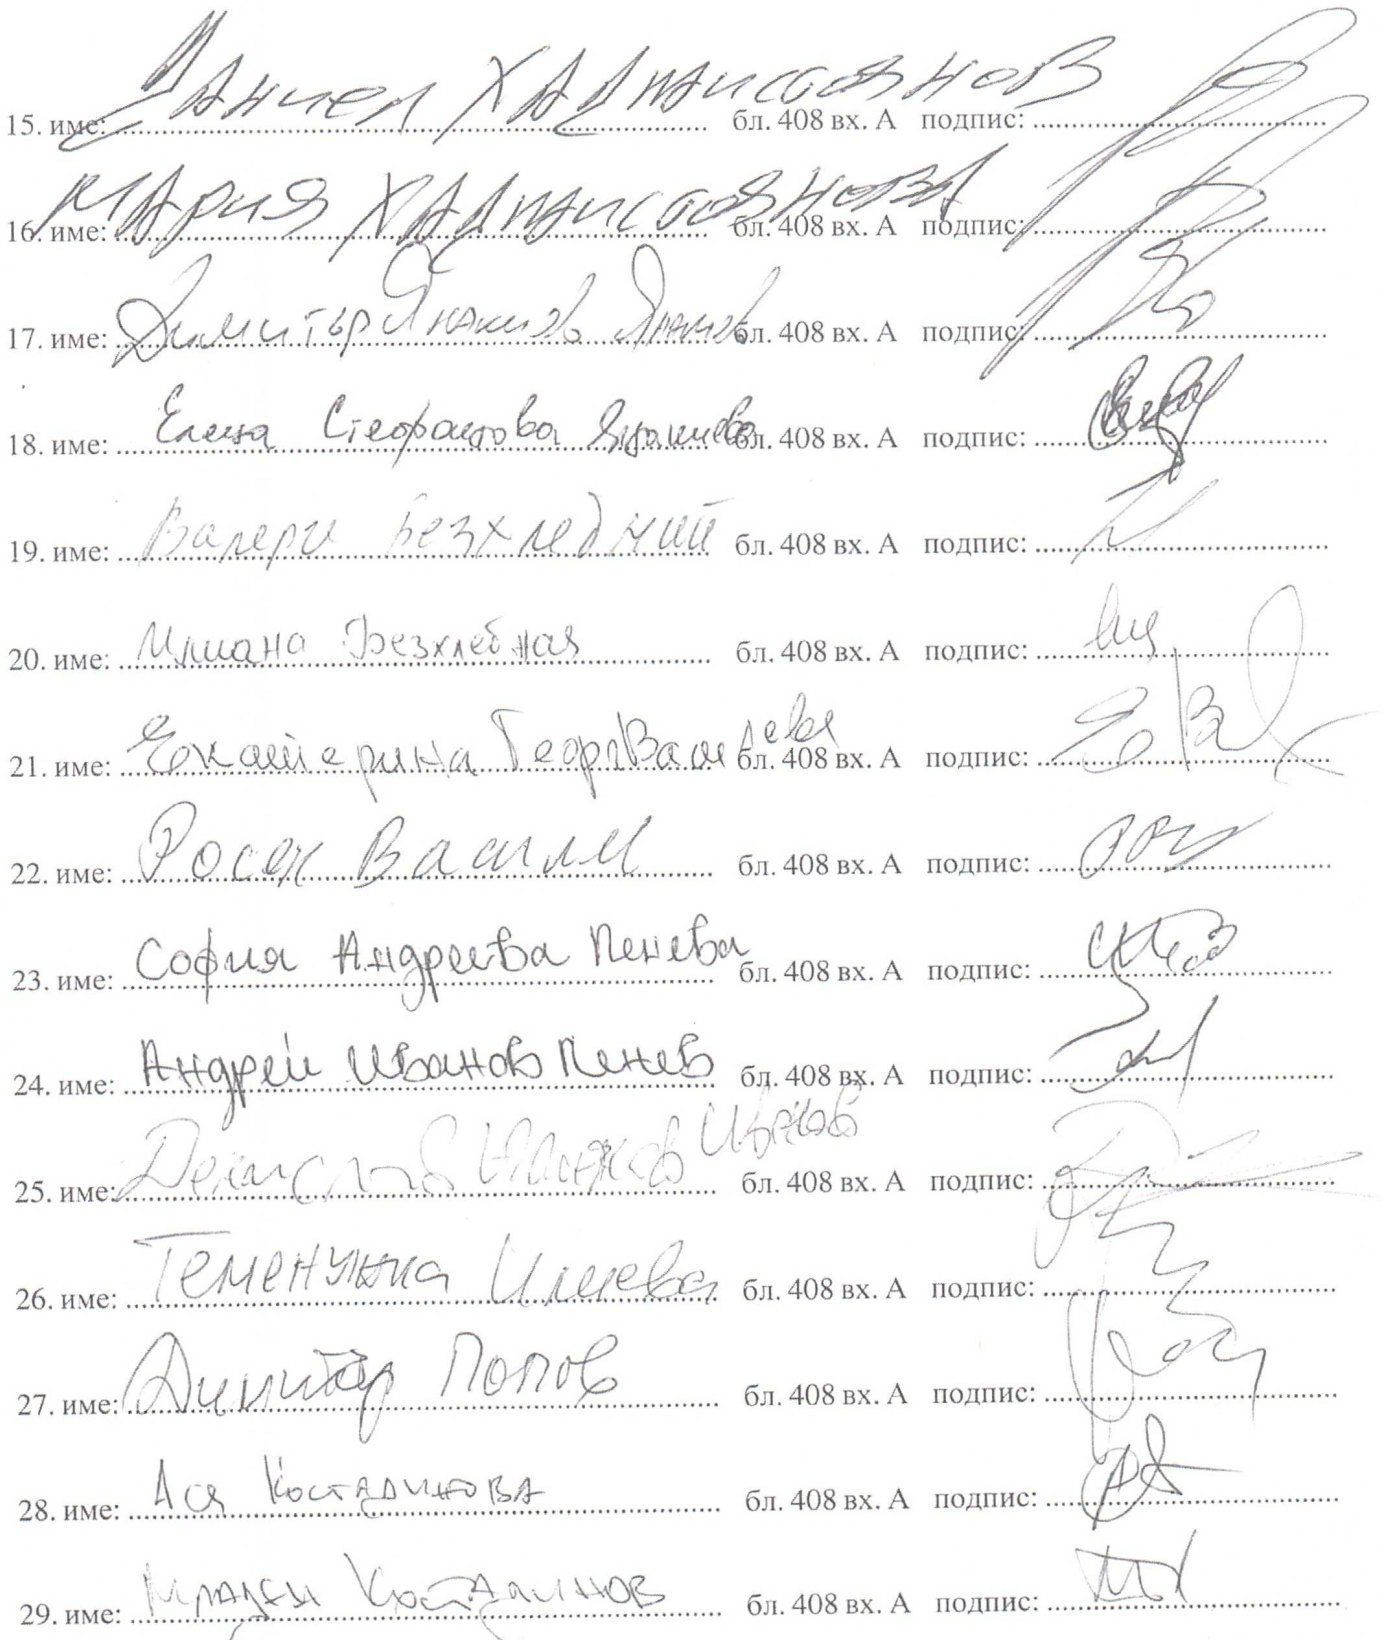 15. име: Даниел Хаджистоянов бл. 408 вх. А подпис:
16. име: Мария Хаджистоянова бл. 408 вх. А подпис:
17. име: Димитър Янакиев Янакиев бл. 408 вх. А подпис:
18. име: Елена Стефанова Янакиева бл. 408 вх. А подпис:
19. име: Валери Безхлебний бл. 408 вх. А подпис:
20. име: Илиана Безхлебная бл. 408 вх. А подпис:
21. име: Екатерина Георг Василева бл. 408 вх. А подпис:
22. име: Росен Васил бл. 408 вх. А подпис:
23. име: София Андреева Пенева бл. 408 вх. А подпис:
24. име: Андрей Иванов Пенев бл. 408 вх. А подпис:
25. име: Денислав Иванов бл. 408 вх. А подпис:
26. име: Теменужка Илиева бл. 408 вх. А подпис:
27. име: Димитър Попов бл. 408 вх. А подпис:
28. име: Ася Костадинова бл. 408 вх. А подпис:
29. име: Младен Костадинов бл. 408 вх. А подпис: